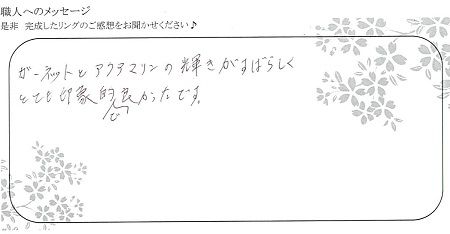 職人へのメッセージ
是非 完成したリングのご感想をお聞かせください♪
ガーネットとアクアマリンの輝きがすばらしく
とても印象的で良かったです。